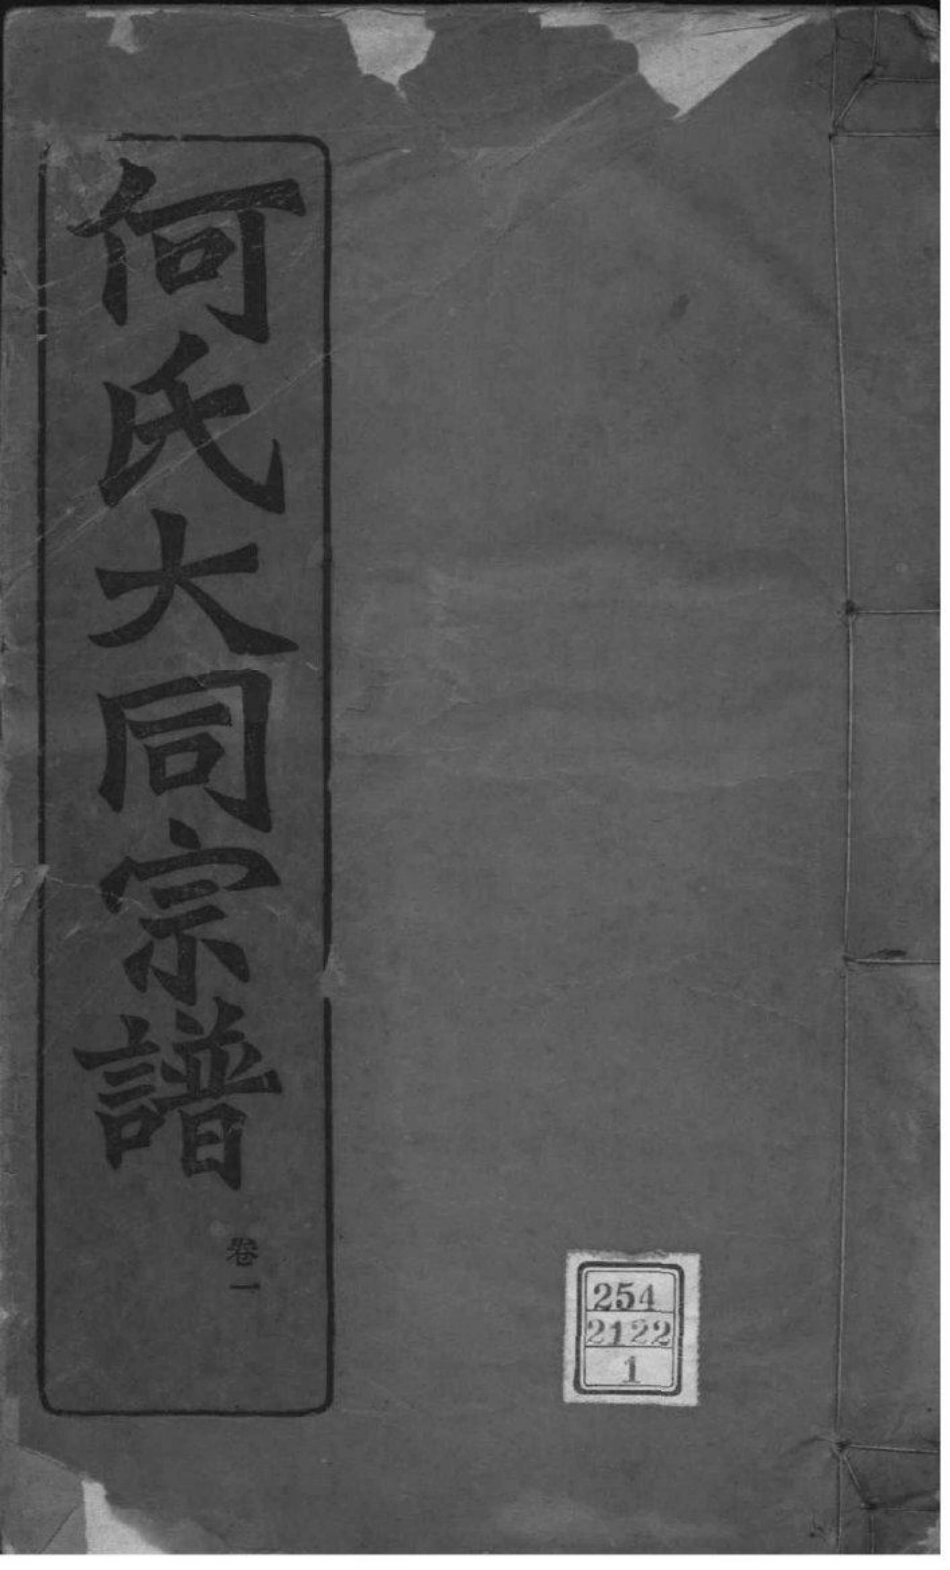 何氏大同宗譜
卷一
254
2122
1